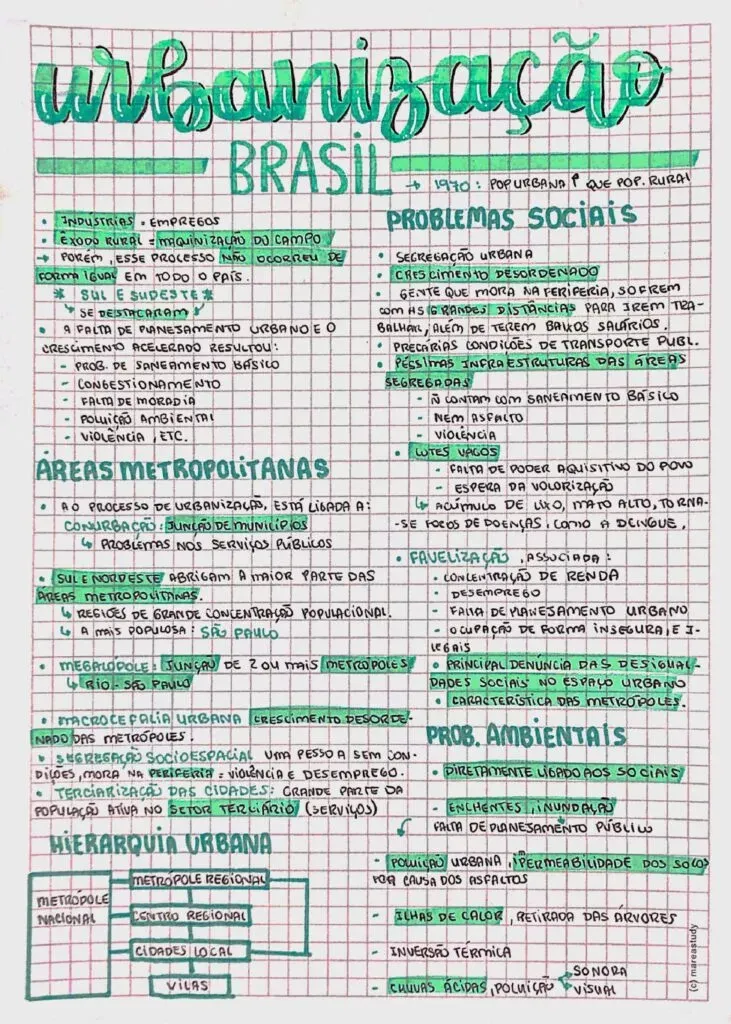 urbanização
BRASIL
→ 1970: POP URBANA ↑ QUE POP. RURAL
• INDÚSTRIAS = EMPREGOS
• ÊXODO RURAL = MAQUINIZAÇÃO DO CAMPO
→ PORÉM, ESSE PROCESSO NÃO OCORREU DE
FORMA IGUAL EM TODO O PAÍS.
* SUL E SUDESTE *
↳ SE DESTACARAM
• A FALTA DE PLANESAMENTO URBANO E O
CRESCIMENTO ACELERADO RESULTOU:
- PROB. DE SANEAMENTO BÁSICO
- CONGESTIONAMENTO
- FALTA DE MORADIA
- POLUIÇÃO AMBIENTAL
- VIOLÊNCIA, ETC.
ÁREAS METROPOLITANAS
• AO PROCESSO DE URBANIZAÇÃO, ESTÁ LIGADA A:
CONURBAÇÃO: JUNÇÃO DE MUNICÍPIOS
↳ PROBLEMAS NOS SERVIÇOS PÚBLICOS
• SUL E NORDESTE ABRIGAM A MAIOR PARTE DAS
ÁREAS METROPOLITANAS.
↳ REGIÕES DE GRANDE CONCENTRAÇÃO POPULACIONAL.
↳ A MAIS POPULOSA: SÃO PAULO
• MEGALÓPOLE: JUNÇÃO DE 2 OU MAIS METRÓPOLES
↳ RIO - SÃO PAULO
• MACROCEFALIA URBANA CRESCIMENTO DESORDE-
NADO DAS METRÓPOLES.
• SEGREGAÇÃO SOCIOESPACIAL UMA PESSOA SEM CON-
DIÇÕES, MORA NA PERIFERIA = VIOLÊNCIA E DESEMPREGO.
• TERCIARIZAÇÃO DAS CIDADES: GRANDE PARTE DA
POPULAÇÃO ATIVA NO SETOR TERCIÁRIO (SERVIÇOS)
HIERARQUIA URBANA
METRÓPOLE
NACIONAL
METRÓPOLE REGIONAL
CENTRO REGIONAL
CIDADES LOCAL
VILAS
PROBLEMAS SOCIAIS
• SEGREGAÇÃO URBANA
• CRESCIMENTO DESORDENADO
• GENTE QUE MORA NA PERIFERIA, SOFREM
COM AS GRANDES DISTÂNCIAS PARA IREM TRA-
BALHAR, ALÉM DE TEREM BAIXOS SALÁRIOS.
• PRECÁRIAS CONDIÇÕES DE TRANSPORTE PUBL.
• PÉSSIMAS INFRAESTRUTURAS DAS ÁREAS
SEGREGADAS
- Ñ CONTAM COM SANEAMENTO BÁSICO
- NEM ASFALTO
- VIOLÊNCIA
• LOTES VAGOS
- FALTA DE PODER AQUISITIVO DO POVO
- ESPERA DA VOLORIZAÇÃO
↳ ACÚMULO DE LIXO, MATO ALTO, TORNA-
-SE FOCOS DE DOENÇAS, COMO A DENGUE.
• FAVELIZAÇÃO, ASSOCIADA:
• CONCENTRAÇÃO DE RENDA
• DESEMPREGO
- FALTA DE PLANESAMENTO URBANO
- OCUPAÇÃO DE FORMA INSEGURA, E I-
LEGAIS
• PRINCIPAL DENÚNCIA DAS DESIGUAL-
DADES SOCIAIS NO ESPAÇO URBANO
• CARACTERÍSTICA DAS METRÓPOLES.
PROB. AMBIENTAIS
• DIRETAMENTE LIGADO AOS SOCIAIS
- ENCHENTES, INUNDAÇÃO
FALTA DE PLANESAMENTO PÚBLICO
- POLUIÇÃO URBANA, IMPERMEABILIDADE DOS SOLOS
POR CAUSA DOS ASFALTOS
- ILHAS DE CALOR, RETIRADA DAS ÁRVORES
- INVERSÃO TÉRMICA
- CHUVAS ÁCIDAS, POLUIÇÃO
SONORA
VISUAL
(c) mareastudy